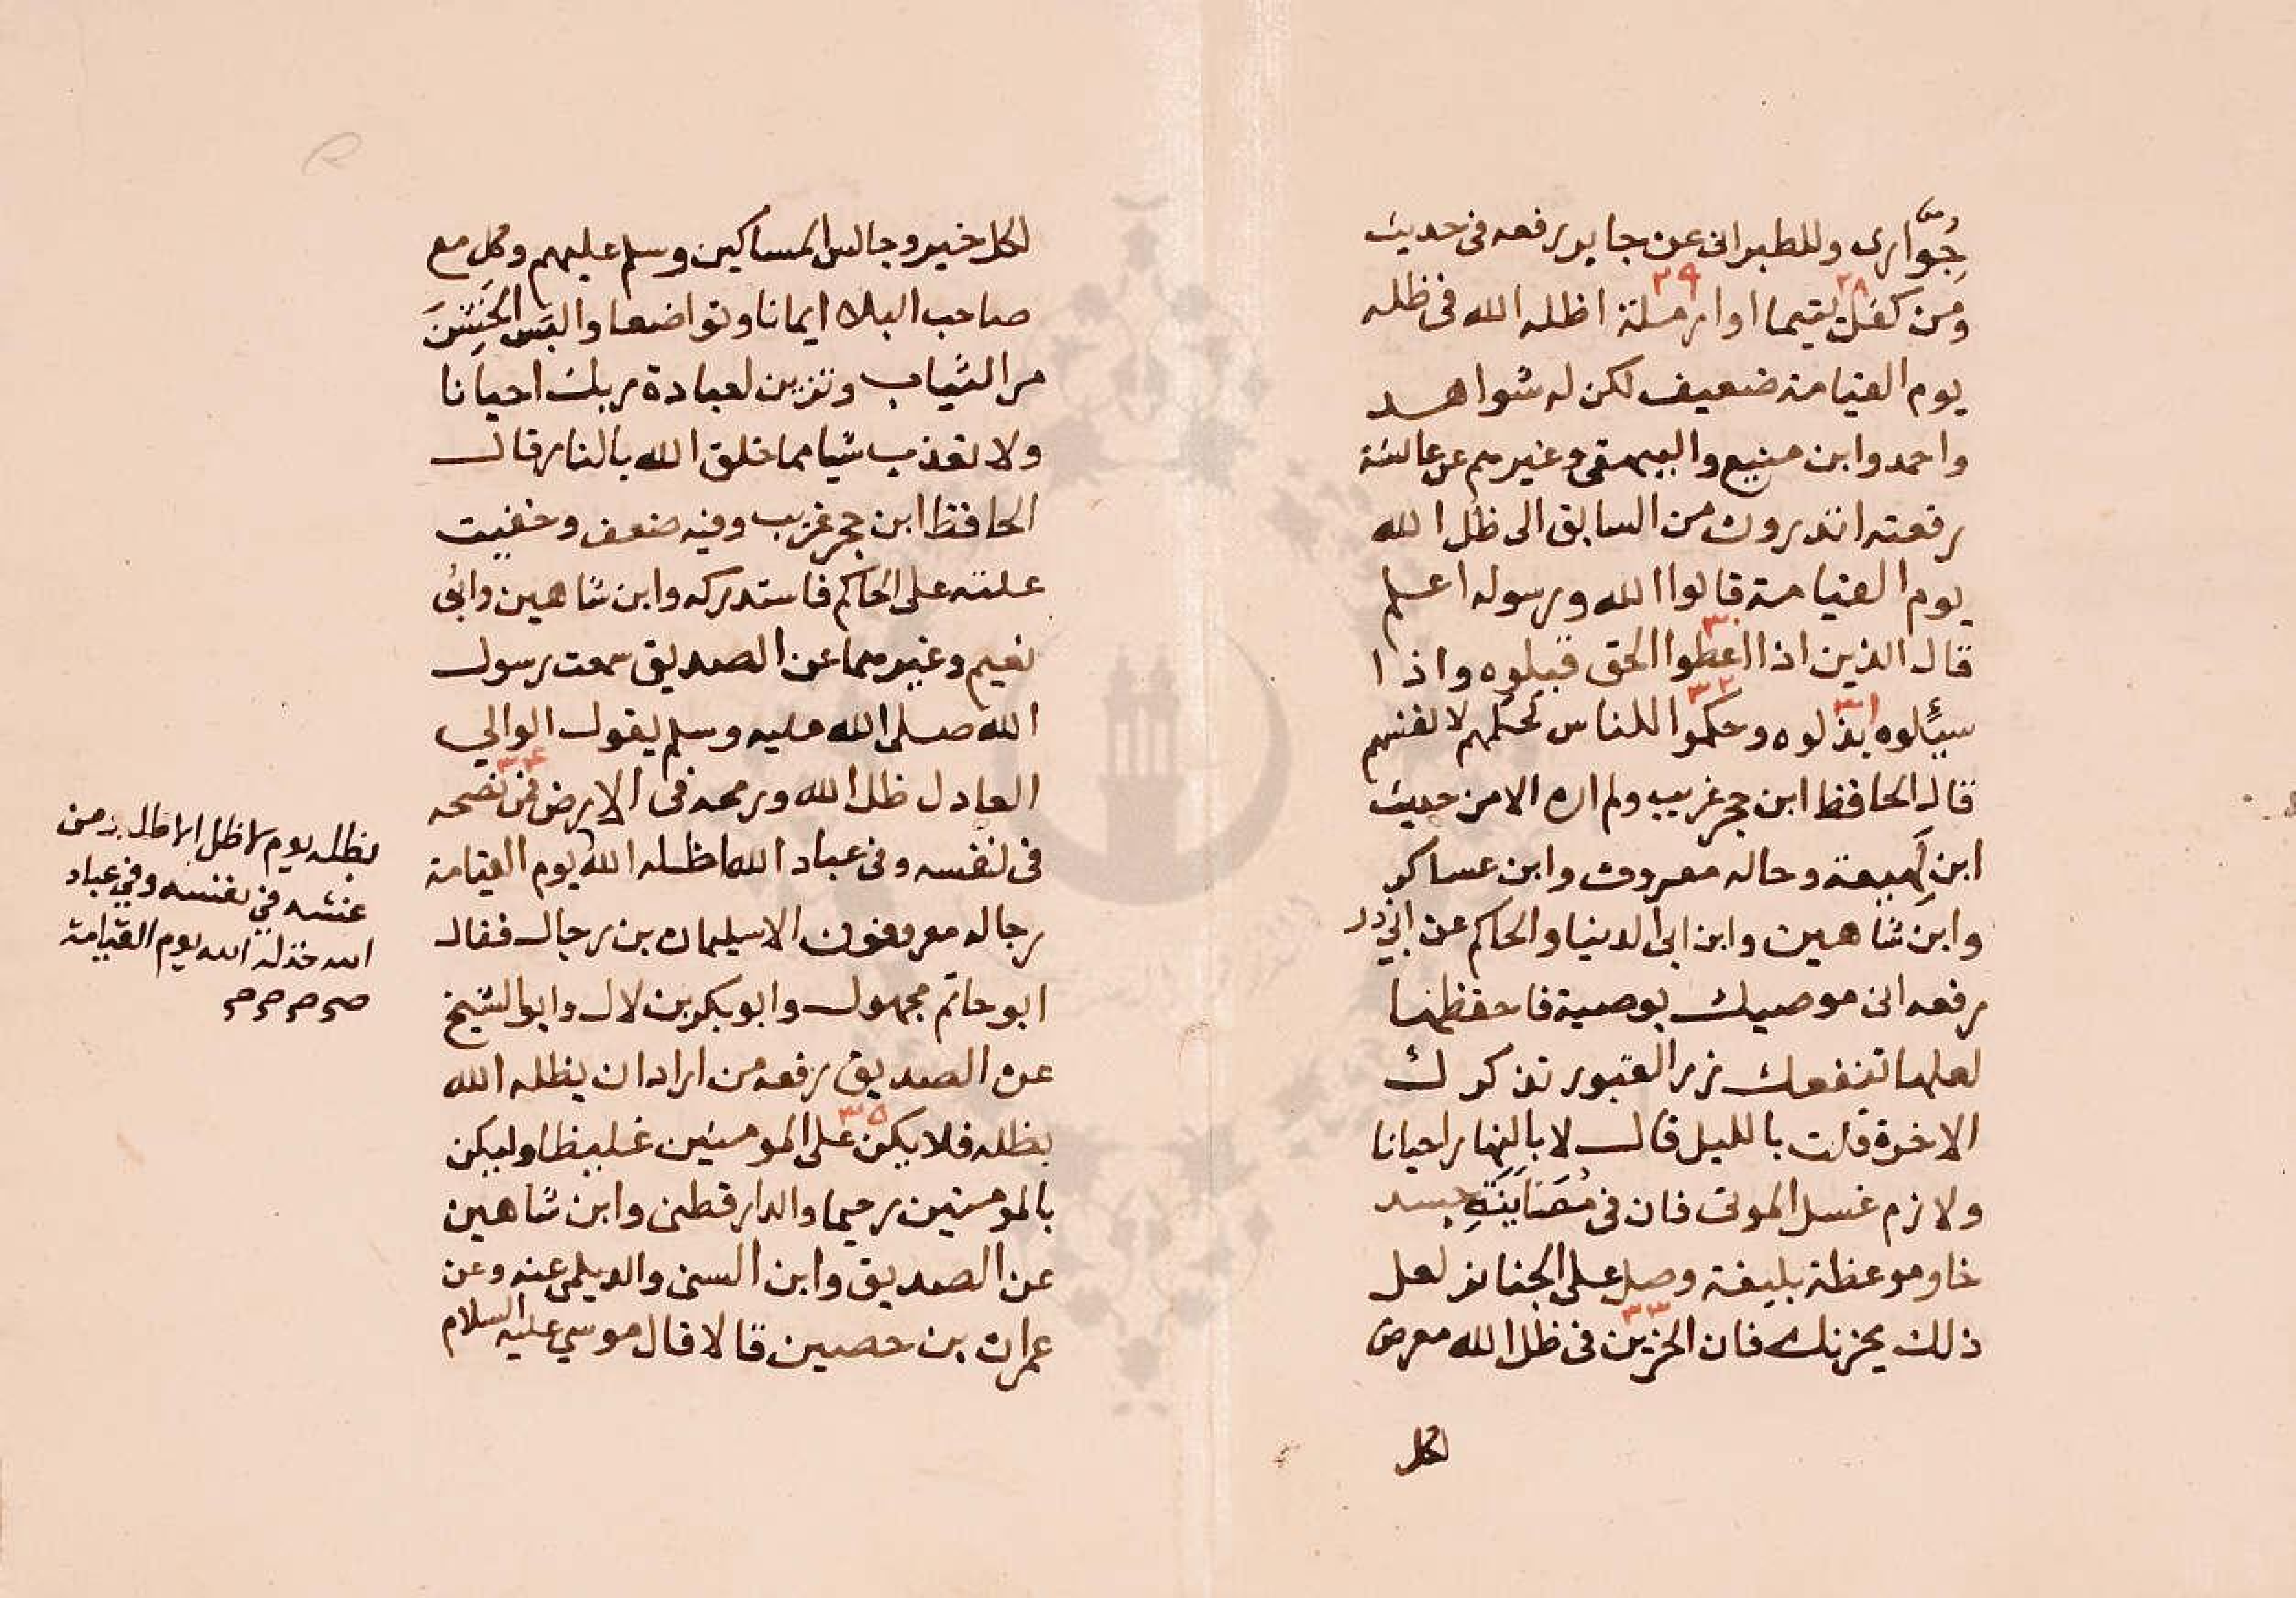 جواري وللطبراني عن جابر رفعه في حديث
ومن كفل يتيما او ارملة اظله الله في ظله
٢٨ ٢٩
يوم القيامة ضعيف لكن له شواهد
واحمد وابن منيع والبيهقي وغيرهم عن عائشة
رفعته اتدرون من السابق الى ظل الله
يوم القيامة قالوا الله ورسوله اعلم
قال الذين اذا اعطوا الحق قبلوه واذا
٣٠
سئلوه بذلوه وحكموا للناس كحكمهم لانفسهم
٣١ ٣٢
قال الحافظ ابن حجر غريب ولم اره الا من حديث
ابن لَهِيعة وحاله معروف وابن عساكر
وابن شاهين وابن ابي الدنيا والحاكم عن ابي ذر
رفعه اني موصيك بوصية فاحفظها
لعلها تنفعك زر القبور تذكرك
الاخرة قلت بالليل قال لا بالنهار احيانا
ولازم غسل الموتى فان في جسد
خاو موعظة بليغة وصل على الجنائز لعل
ذلك يحزنك فان الحزين في ظل الله معرض
٣٣
لكل
لكل خير وجالس المساكين وسلم عليهم وكل مع
صاحب البلاء ايمانا وتواضعا والبس الخَشِنَ
من الثياب وتزين لعبادة ربك احيانا
ولا تعذب شيا مما خلق الله بالنار قال
الحافظ ابن حجر غريب وفيه ضعف وخفيت
علته على الحاكم فاستدركه وابن شاهين وابي
نعيم وغيرهما عن الصديق سمعت رسول
الله صلى الله عليه وسلم يقول الوالي
العادل ظل الله ورمحه في الارض فمن نصحه
٣٤
في نفسه وفي عباد الله اظله الله يوم القيامة
رجاله معروفون الا سليمان بن رجال فقال
ابو حاتم مجهول وابو بكر بن لال وابو الشيخ
عن الصديق رفعه من اراد ان يظله الله
بظله فلا يكن على المومنين غليظا وليكن
٣٥
بالمومنين رحيما والدارقطني وابن شاهين
عن الصديق وابن السني والديلمي عنه وعن
عمران بن حصين قالا قال موسي عليه السلام
بظله يوم لا ظل الا ظله ومن
غشه في نفسه وفي عباد
الله خذله الله يوم القيامة
صح صح صح صح